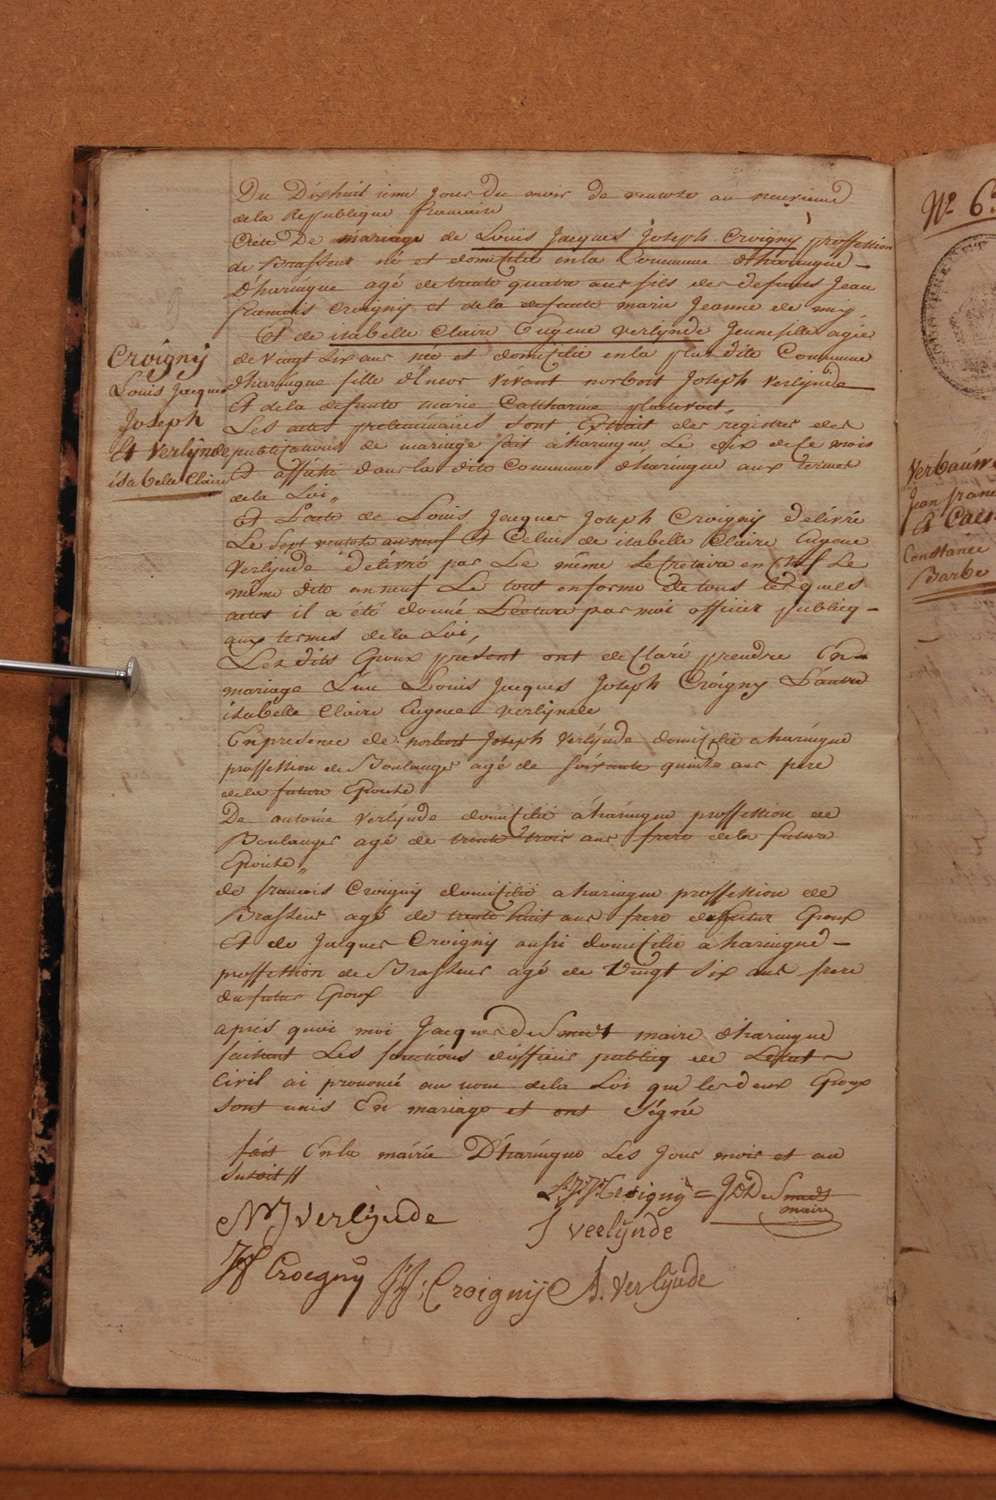 Du Dixhuit ieme Jour du mois de ventose an neuvieme
de la Republique francaise
Acte De mariage de Louis Jacques Joseph Croigny proffession
de Brasseur né et domicilié en la Commune d'haringue
D'haringue agé de trente quatre ans fils des defunts Jean
francois Croigny et de la defunte marie Jeanne de
Et de isabelle Claire Eugene Verlynde Jeune fille agée
de vingt six ans née et domicilié en la plus dite Commune
d'haringue fille d'Encor vivant norbert Joseph Verlynde
Et de la defunte marie Catharine
Les actes preliminaires sont Extrait des registres des
publications de mariage fait a haringue Le dix de Ce mois
Et affiché dans la dite Commune d'haringue aux termes
de la Loi,,
Et L'acte de Louis Jacques Joseph Croigny délivré
Le Sept ventose an neuf Et Celui de isabelle Claire Eugene
Verlynde délivré par Le même Secretaire en Chef Le
même dito an neuf Le tout enforme de tous lesquels
actes il a été donné Lecture par moi officier publicq
aux termes de la Loi,
Les dits Epoux present ont déClaré prendre En
mariage L'un Louis Jacques Joseph Croigny L'autre
isabelle Claire Eugene Verlynde
En presence de norbert Joseph Verlynde domicilié a haringue
proffession de Boulanger agé de soixante quinze ans pere
de la future Epouse
De antoine Verlynde domicilié à haringue proffession de
Boulanger agé de trente trois ans frere de la future
Epouse,,
de francois Croigny domicilié a haringue proffession de
Brasseur agé de trente huit ans frere du futur Epoux
Et de Jacques Croigny aussi domicilié a haringue
proffession de Brasseur agé de Vingt six ans frere
du futur Epoux
apres quoi moi Jacques De Smedt maire d'haringue
faisant Les fonctions d'officier publicq de Letat
Civil ai prononcé au nom de la Loi que les deux Epoux
sont unis En mariage et ont Signé
fait En la mairie D'haringue Les Jour mois et an
Susdit //
Croigny
Louis Jacques
Joseph
Et Verlynde
isabelle Claire
L. J. J. Croigny = J D De Smedt
maire
N J Verlynde
J Verlynde
JF Croegny
JJ: Croignij
A. Verlynde
N° 6:
Verbauw
Jean franc
& Caes
Constance
Barbe